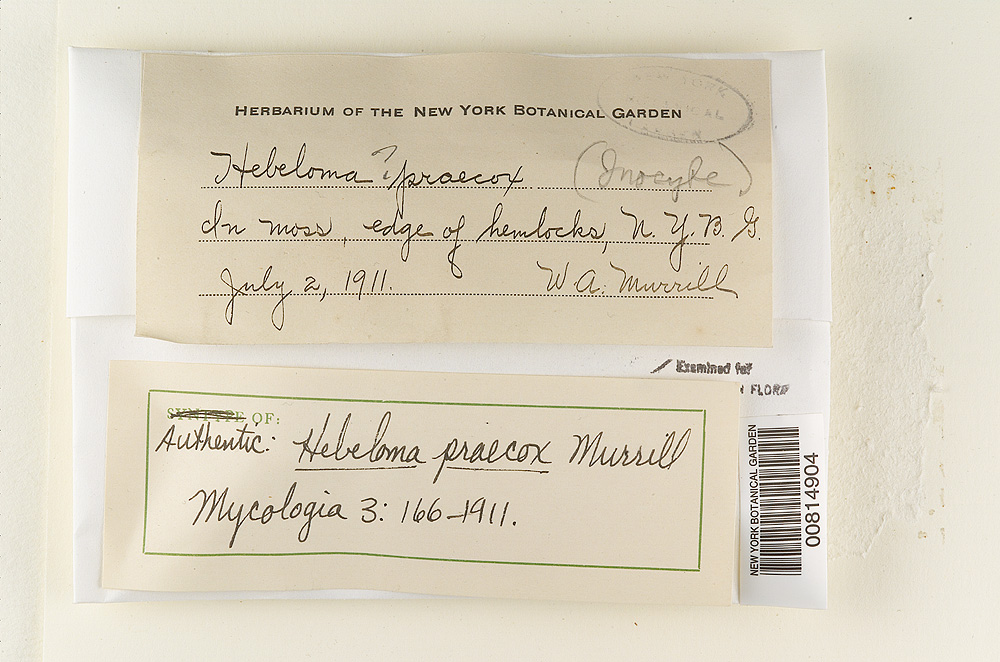 NEW YORK
BOTANICAL
GARDEN
HERBARIUM OF THE NEW YORK BOTANICAL GARDEN
Hebeloma ? praecox (Inocybe)
In moss, edge of hemlocks, N. Y. B. G.
July 2, 1911. W A. Murrill
Examined for
FLORA
SYNTYPE OF:
Authentic: Hebeloma praecox Murrill
Mycologia 3: 166-1911.
NEW YORK BOTANICAL GARDEN
00814904